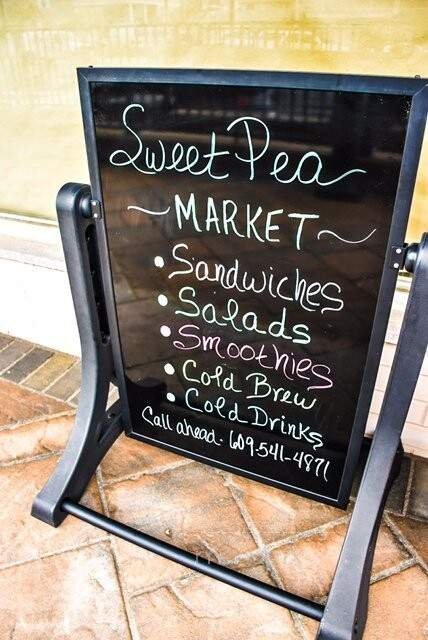 Sweet Pea
~ MARKET ~
• Sandwiches
• Salads
• Smoothies
• Cold Brew
• Cold Drinks
Call ahead - 609-541-4871